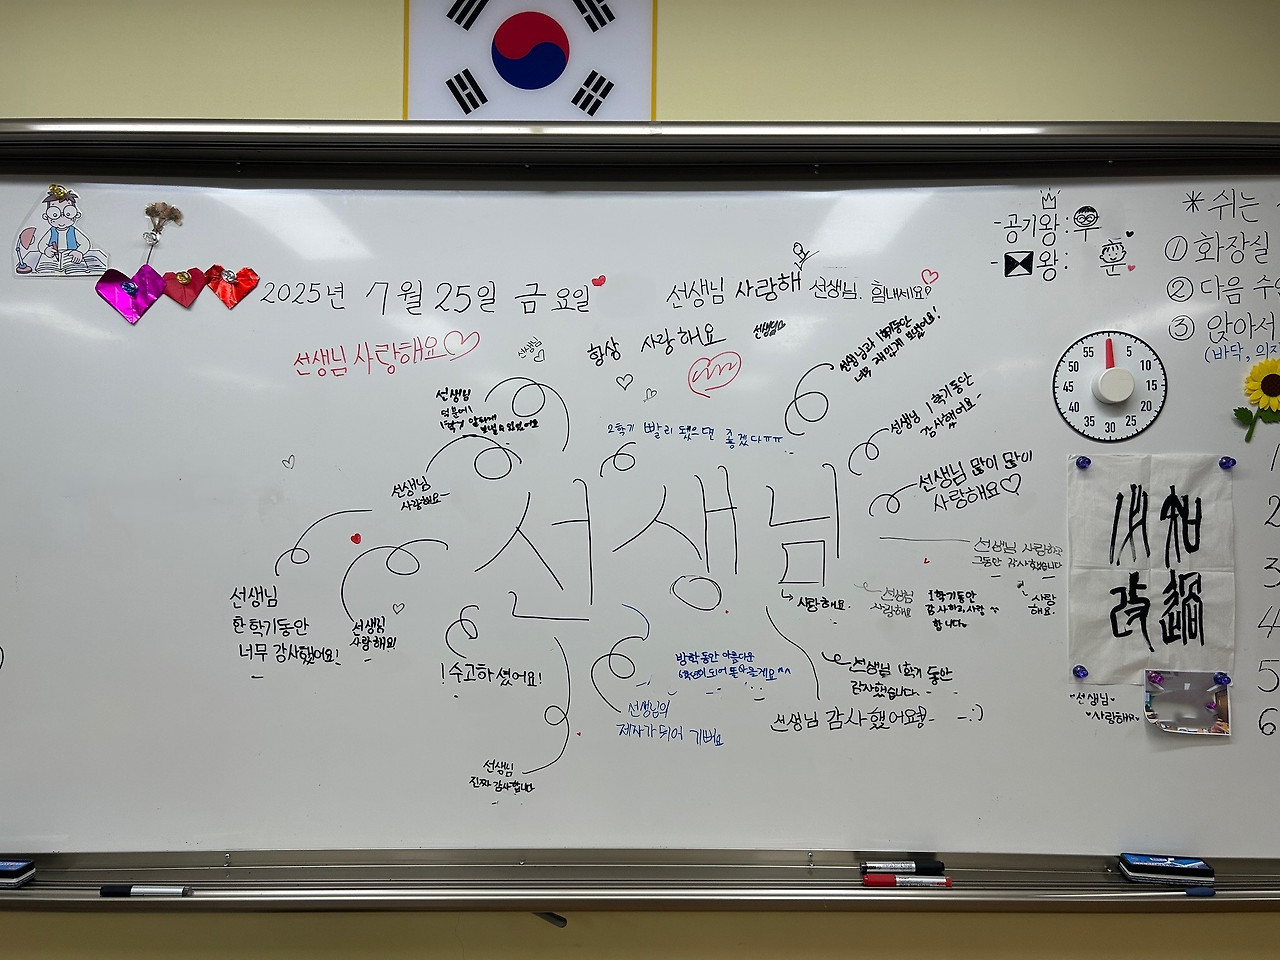 2025년 7월 25일 금요일
선생님 사랑해
선생님. 힘내세요?
-공기왕: 우
-왕: 훈
*쉬는
① 화장실
② 다음 수
③ 앉아서
(바닥, 의자
선생님 사랑해요♡
선생님♡
항상 사랑해요
선생님
선생님과 1학기동안
너무 재밌게 보냈어요!
선생님
덕분에!
1학기 알차게
보낼 수 있었어요
2학기 빨리 됐으면 좋겠다ㅠㅠ
선생님 1학기동안
감사했어요~
선생님
사랑해요~
선생님 많이 많이
사랑해요♡
선생님
선생님 사랑하고
그동안 감사했습니다
선생님
한학기동안
너무 감사했어요!
선생님
사랑해요!
사랑해요.
선생님
사랑해요
1학기동안
감사하고, 사랑
합니다.
사랑
해요.
!수고하셨어요!
방학동안 아름다운
되어 돌아올게요^^
선생님 1학기 동안
감사했습니다.
선생님의
제자가 되어 기뻐요
선생님 감사했어요
-:)
선생님
진짜 감사합니다
"선생님
사랑해요"
55 5
50 10
45 15
40 20
35 30 25
知過
必改
1
2
3
4
5
6